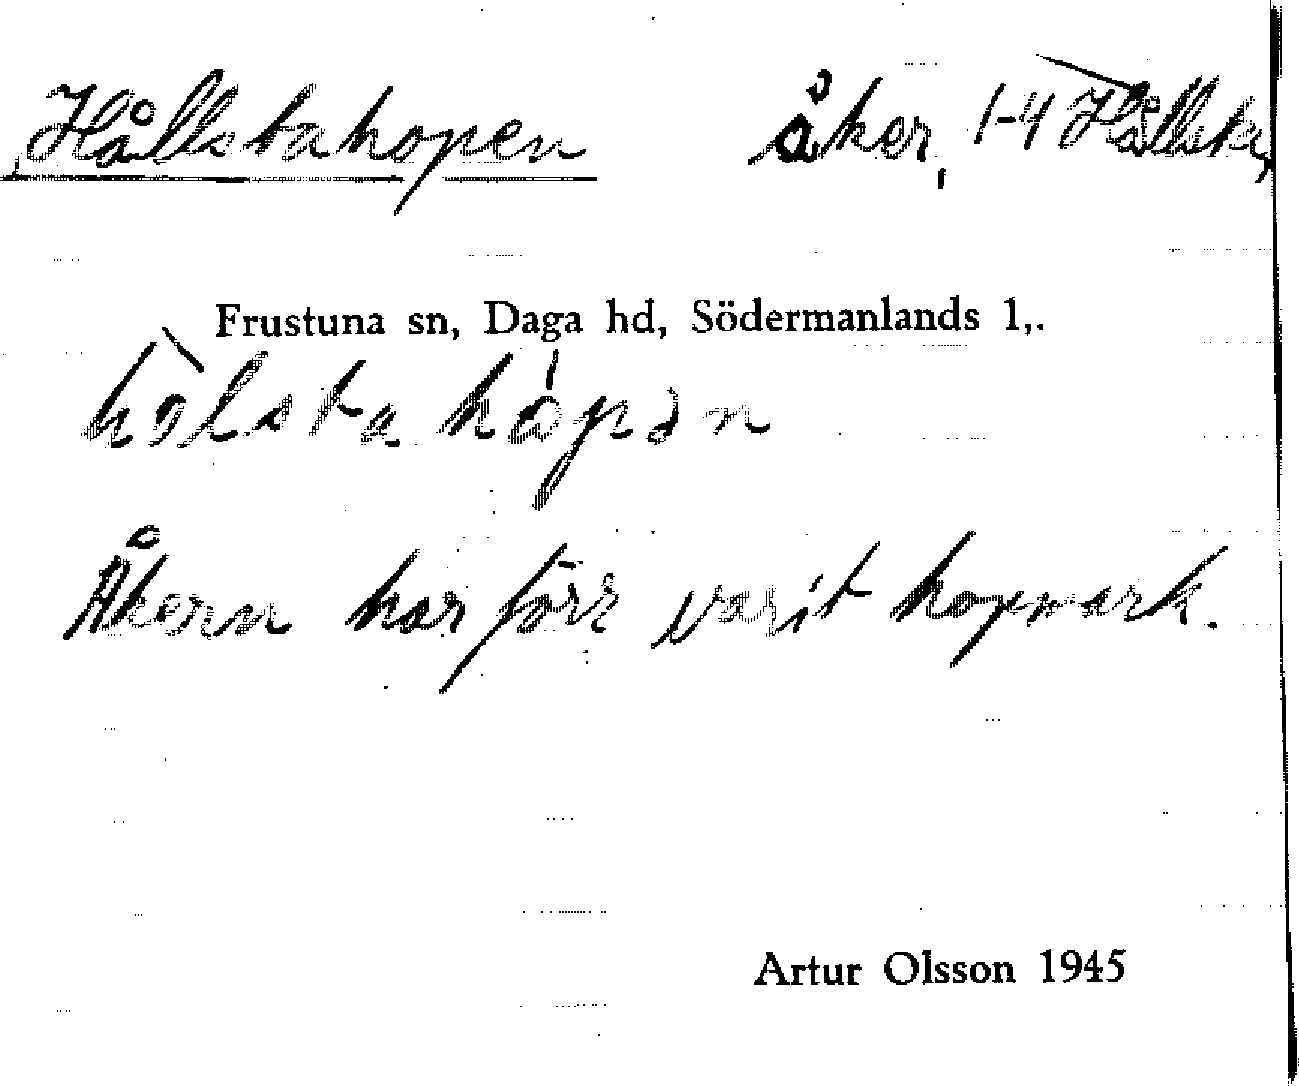 Hållstahopen åker, 1-4 Hållsta,
Frustuna sn, Daga hd, Södermanlands l,.
hòlsta hópən
Åkern har förr varit hopmark.
Artur Olsson 1945